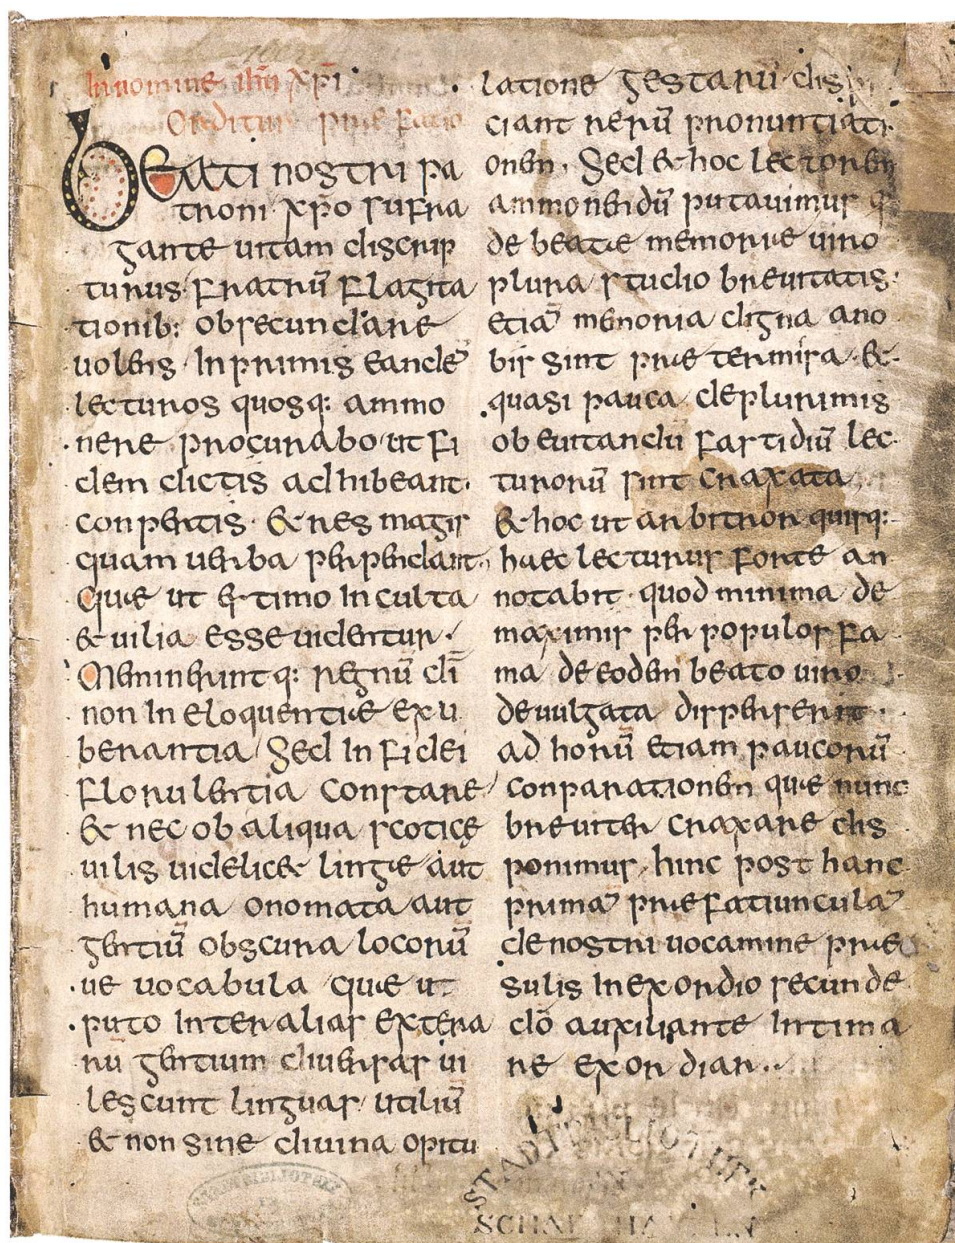 In nomine ihū xp̄i
Orditur praefatio
Beati nostri pa
troni xp̄o sufra
gante uitam discrip
turus fratrū flagita
tionib: obsecundare
uolens Inprimis eande͞
lecturos quosq: ammo
nere procurabo ut fi
dem dictis adhibeant
conpertis & res magis
quam uerba perpendant
quae ut estimo Inculta
& uilia esse uidentur
Meminerintq: regnū dī
non In eloquentiae exu
berantia sed In fidei
florulentia constare
& nec ob aliqua scoticę
uilis uidelicet lingae aut
humana onomata aut
gentiū obscura locorū
ue uocabula quae ut
puto Inter alias exterā
rū gentium diuersas ui
lescunt linguas utiliū
& non sine diuina opitu
latione gestarū dis
ciant rerū pronuntiati
onem. Sed & hoc lectorem
ammonendū putauimus q̄
de beatae memoriae uiro
plura studio breuitatis
etiā memoria digna ano
bis sint praetermisa &
quasi pauca deplurimis
ob euitandū fastidiū lec
turorū sint craxata
& hoc ut arbitror quisq:
haec lecturus forte an
notabit quod minima de
maximis per populos fa
ma de eodem beato uiro
deuulgata disperserit
ad horū etiam paucorū
conparationem quae nunc
breuiter craxare dis
ponimus hinc post hanc
primā praefatiunculā
de nostri uocamine prae
sulis Inexordio secunde
dō auxiliante Intima
re exordiar..
STADTBIBLIOTHEK
SCHAFFHAUSEN